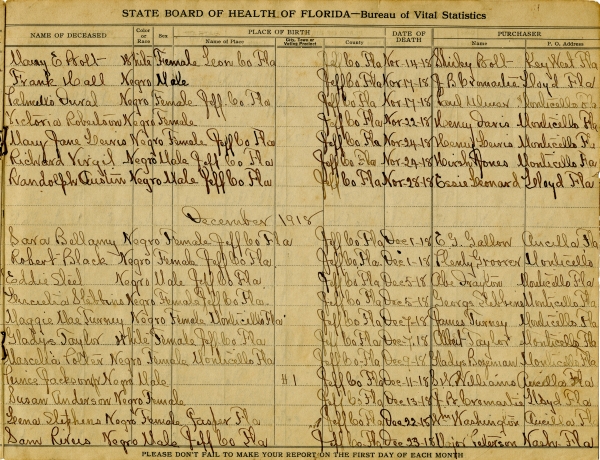 STATE BOARD OF HEALTH OF FLORIDA—Bureau of Vital Statistics
NAME OF DECEASED Color or Race Sex PLACE OF BIRTH DATE OF DEATH PURCHASER
Name of Place City, Town or Voting Precinct County Name P. O. Address
Mary E Bolt White Female Leon Co Fla Jeff Co Fla Nov-14-18 Shirley Bolt Key West Fla
Frank Hall Negro Male Jeff Co Fla Nov-17-18 J B Cromartie Lloyd Fla
Duval Negro Female Jeff. Co Fla Jeff Co Fla Nov-17-18 Paul Ulmer Monticello Fla
Victoria Robertson Negro Female Jeff Co Fla Nov-22-18 Henry Davis Monticello Fla
Mary Jane Lewis Negro Female Jeff Co Fla Jeff Co Fla Nov-24-18 Henry Lewis Monticello Fla
Richard Virgil Negro Male Jeff Co Fla Jeff Co Fla Nov-24-18 Jones Monticello Fla
Randolph Austin Negro Male Jeff Co Fla Jeff Co Fla Nov-28-18 Essie Leonard Lloyd Fla
December 1918
Sara Bellamy Negro Female Jeff Co Fla Jeff Co Fla Dec-1-18 E G Gallon Aucilla Fla
Robert Black Negro Female Jeff Co Fla Jeff Co Fla Dec-1-18 Henry Groover Monticello
Eddie Negro Male Jeff Co Fla Jeff Co Fla Dec-5-18 Abe Monticello Fla
Negro Female Jeff Co Fla Jeff Co Fla Dec-5-18 George Monticello Fla
Maggie Mae Turney Negro Female Monticello Fla Jeff Co Fla Dec-7-18 James Turney Monticello Fla
Gladys Taylor White Female Jeff Co Fla Jeff Co Fla Dec-7-18 Albert Taylor Monticello Fla
Potter Negro Female Monticello Fla Jeff Co Fla Dec-9-18 Gladys Bozeman Monticello Fla
Prince Jackson Negro Male #1 Jeff Co Fla Dec-11-18 Williams Aucilla Fla
Susan Anderson Negro Female Jeff Co Fla Dec-13-18 J. B. Cromartie Lloyd Fla
Leena Stephens Negro Female Jasper Fla Jeff Co Fla Dec-22-18 Wm Washington Aucilla Fla
Sam Rivers Negro Male Jeff Co Fla Jeff Co Fla Dec-23-18 Major Peterson Wash. Fla
PLEASE DON'T FAIL TO MAKE YOUR REPORT ON THE FIRST DAY OF EACH MONTH